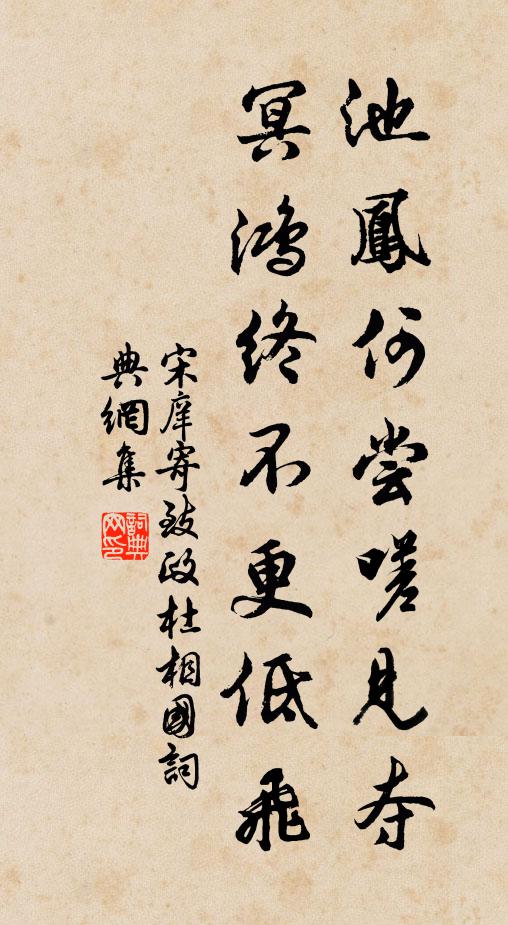 池鳳何嘗嗟見夺
冥鴻終不更低飛
宋庠寄致政杜相國詞
典網集
詞典网印